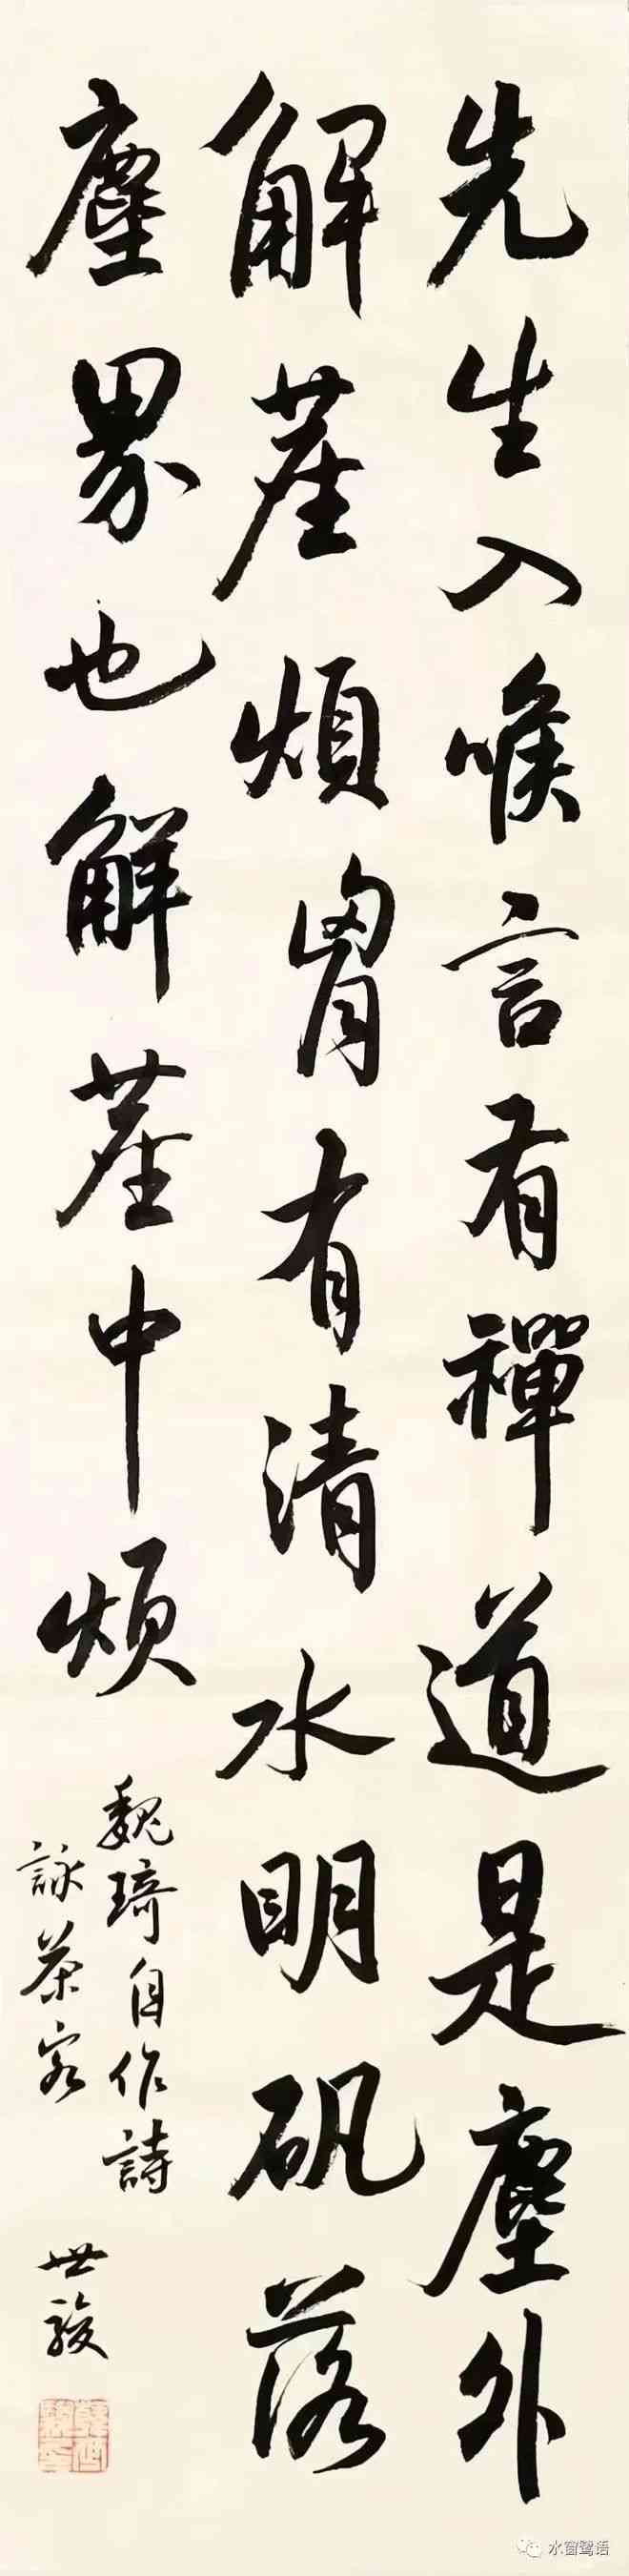 先生入喉言有禪道是塵外
解茬煩胷有清水明矾落
塵界也解茬中煩
魏琦自作詩
詠茶客 世駿
水窗鹭语